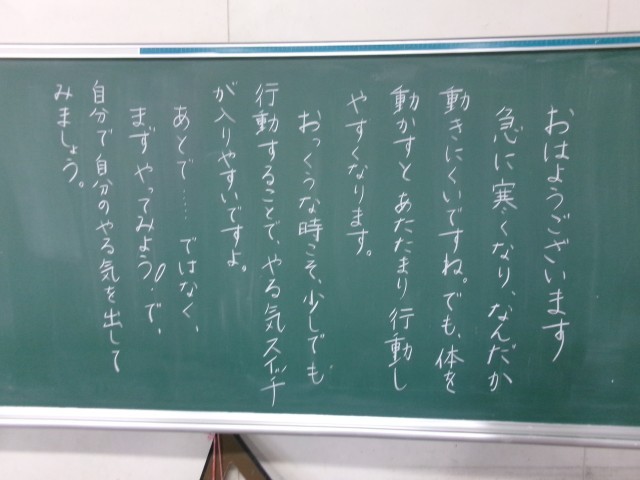 おはようございます
急に寒くなり、なんだか
動きにくいですね。でも、体を
動かすとあたたまり行動し
やすくなります。
おっくうな時こそ、少しでも
行動することで、やる気スイッチ
が入りやすいですよ。
あとで……ではなく、
まずやってみよう!で、
自分で自分のやる気を出して
みましょう。